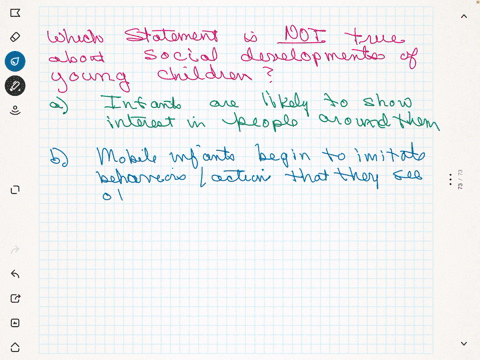 Which Statement is NOT true
about social developments of
young children?
a) Infants are likely to show
interest in people around them
b) Mobile infants begin to imitate
behaviors/action that they see
73 / 73